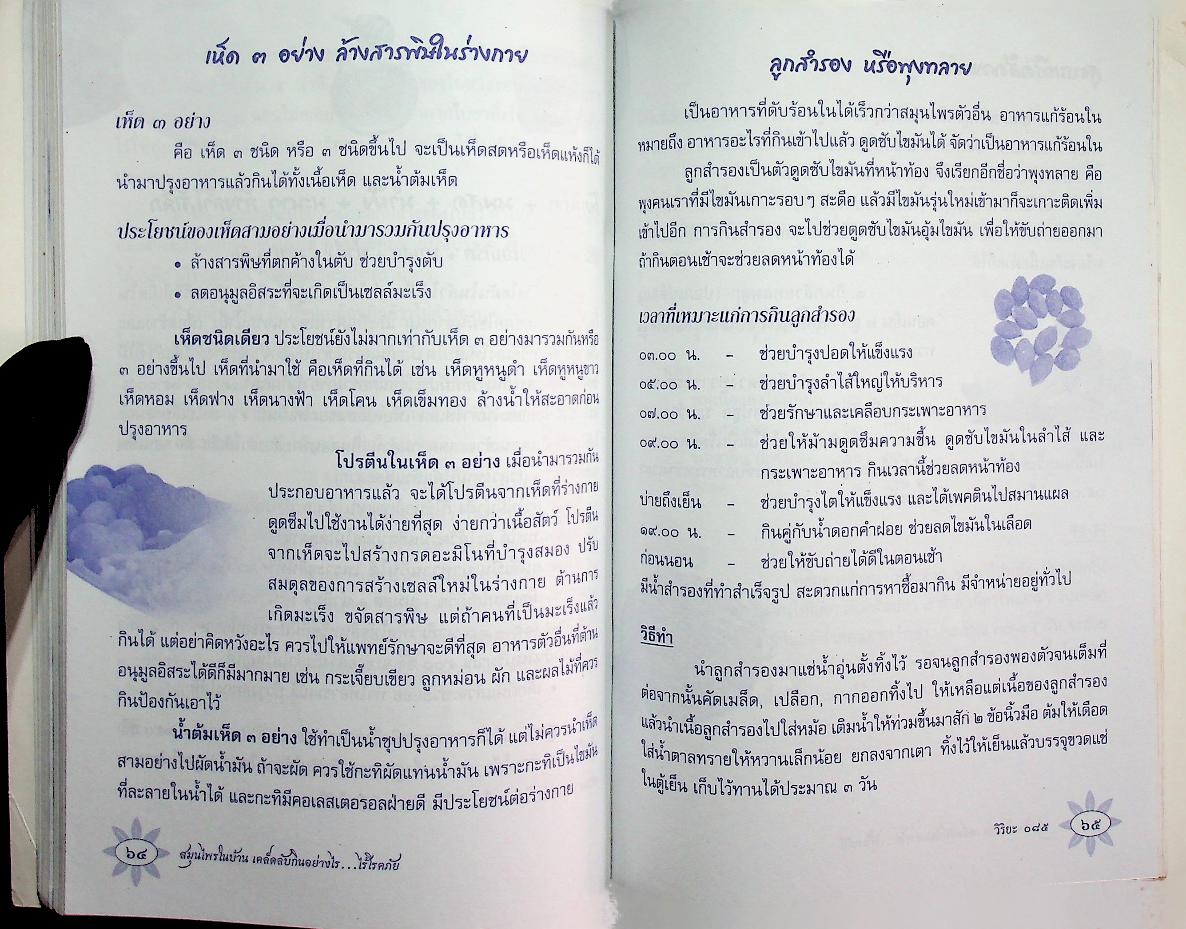 เห็ด ๓ อย่าง ล้างสารพิษในร่างกาย
เห็ด ๓ อย่าง
คือ เห็ด ๓ ชนิด หรือ ๓ ชนิดขึ้นไป จะเป็นเห็ดสดหรือเห็ดแห้งก็ได้
นำมาปรุงอาหารแล้วกินได้ทั้งเนื้อเห็ด และน้ำต้มเห็ด
ประโยชน์ของเห็ดสามอย่างเมื่อนำมารวมกันปรุงอาหาร
• ล้างสารพิษที่ตกค้างในตับ ช่วยบำรุงตับ
• ลดอนุมูลอิสระที่จะเกิดเป็นเซลล์มะเร็ง
เห็ดชนิดเดียว ประโยชน์ยังไม่มากเท่ากับเห็ด ๓ อย่างมารวมกันหรือ
๓ อย่างขึ้นไป เห็ดที่นำมาใช้ คือเห็ดที่กินได้ เช่น เห็ดหูหนูดำ เห็ดหูหนูขาว
เห็ดหอม เห็ดฟาง เห็ดนางฟ้า เห็ดโคน เห็ดเข็มทอง ล้างน้ำให้สะอาดก่อน
ปรุงอาหาร
โปรตีนในเห็ด ๓ อย่าง เมื่อนำมารวมกัน
ประกอบอาหารแล้ว จะได้โปรตีนจากเห็ดที่ร่างกาย
ดูดซึมไปใช้งานได้ง่ายที่สุด ง่ายกว่าเนื้อสัตว์ โปรตีน
จากเห็ดจะไปสร้างกรดอะมิโนที่บำรุงสมอง ปรับ
สมดุลของการสร้างเซลล์ใหม่ในร่างกาย ต้านการ
เกิดมะเร็ง ขจัดสารพิษ แต่ถ้าคนที่เป็นมะเร็งแล้ว
กินได้ แต่อย่าคิดหวังอะไร ควรไปให้แพทย์รักษาจะดีที่สุด อาหารตัวอื่นที่ต้าน
อนุมูลอิสระได้ดีก็มีมากมาย เช่น กระเจี๊ยบเขียว ลูกหม่อน ผัก และผลไม้ที่ควร
กินป้องกันเอาไว้
น้ำต้มเห็ด ๓ อย่าง ใช้ทำเป็นน้ำซุปปรุงอาหารก็ได้ แต่ไม่ควรนำเห็ด
สามอย่างไปผัดน้ำมัน ถ้าจะผัด ควรใช้กะทิผัดแทนน้ำมัน เพราะกะทิเป็นไขมัน
ที่ละลายในน้ำได้ และกะทิมีคอเลสเตอรอลฝ่ายดี มีประโยชน์ต่อร่างกาย
๖๔ สมุนไพรในบ้าน เคล็ดลับกินอย่างไร...ไร้โรคภัย
ลูกสำรอง หรือพุงทลาย
เป็นอาหารที่ดับร้อนในได้เร็วกว่าสมุนไพรตัวอื่น อาหารแก้ร้อนใน
หมายถึง อาหารอะไรที่กินเข้าไปแล้ว ดูดซับไขมันได้ จัดว่าเป็นอาหารแก้ร้อนใน
ลูกสำรองเป็นตัวดูดซับไขมันที่หน้าท้อง จึงเรียกอีกชื่อว่าพุงทลาย คือ
พุงคนเราที่มีไขมันเกาะรอบๆ สะดือ แล้วมีไขมันรุ่นใหม่เข้ามาก็จะเกาะติดเพิ่ม
เข้าไปอีก การกินสำรอง จะไปช่วยดูดซับไขมันอุ้มไขมัน เพื่อให้ขับถ่ายออกมา
ถ้ากินตอนเช้าจะช่วยลดหน้าท้องได้
เวลาที่เหมาะแก่การกินลูกสำรอง
๐๓.๐๐ น. – ช่วยบำรุงปอดให้แข็งแรง
๐๕.๐๐ น. – ช่วยบำรุงลำไส้ใหญ่ให้บริหาร
๐๗.๐๐ น. – ช่วยรักษาและเคลือบกระเพาะอาหาร
๐๙.๐๐ น. – ช่วยให้ม้ามดูดซึมความชื้น ดูดซับไขมันในลำไส้ และ
กระเพาะอาหาร กินเวลานี้ช่วยลดหน้าท้อง
บ่ายถึงเย็น – ช่วยบำรุงไตให้แข็งแรง และได้เพคตินไปสมานแผล
๑๙.๐๐ น. – กินคู่กับน้ำดอกคำฝอย ช่วยลดไขมันในเลือด
ก่อนนอน – ช่วยให้ขับถ่ายได้ดีในตอนเช้า
มีน้ำสำรองที่ทำสำเร็จรูป สะดวกแก่การหาซื้อมากิน มีจำหน่ายอยู่ทั่วไป
วิธีทำ
นำลูกสำรองมาแช่น้ำอุ่นตั้งทิ้งไว้ รอจนลูกสำรองพองตัวจนเต็มที่
ต่อจากนั้นคัดเมล็ด, เปลือก, กากออกทิ้งไป ให้เหลือแต่เนื้อของลูกสำรอง
แล้วนำเนื้อลูกสำรองไปใส่หม้อ เติมน้ำให้ท่วมขึ้นมาสัก ๒ ข้อนิ้วมือ ต้มให้เดือด
ใส่น้ำตาลทรายให้หวานเล็กน้อย ยกลงจากเตา ทิ้งไว้ให้เย็นแล้วบรรจุขวดแช่
ในตู้เย็น เก็บไว้ทานได้ประมาณ ๓ วัน
วิริยะ ๐๘๕ ๖๕